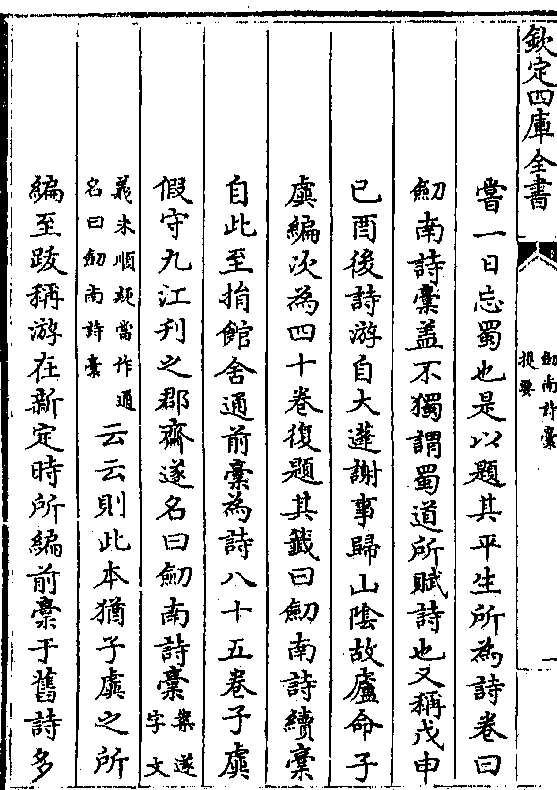 欽定四庫全書
劒南詩稾
提要
一
嘗一日忘蜀也是以題其平生所為詩卷曰
劒南詩稾盖不獨謂蜀道所賦詩也又稱戊申
己酉後詩游自大蓬謝事歸山陰故廬命子
虡編次為四十卷復題其籖曰劒南詩續稾
自此至捐館舍通前稾為詩八十五卷子虡
假守九江刋之郡齋遂名曰劒南詩稾案遂字文
義未順疑當作通名曰劒南詩稾云云則此本猶子虡之所
編至跋稱游在新定時所編前稾于舊詩多